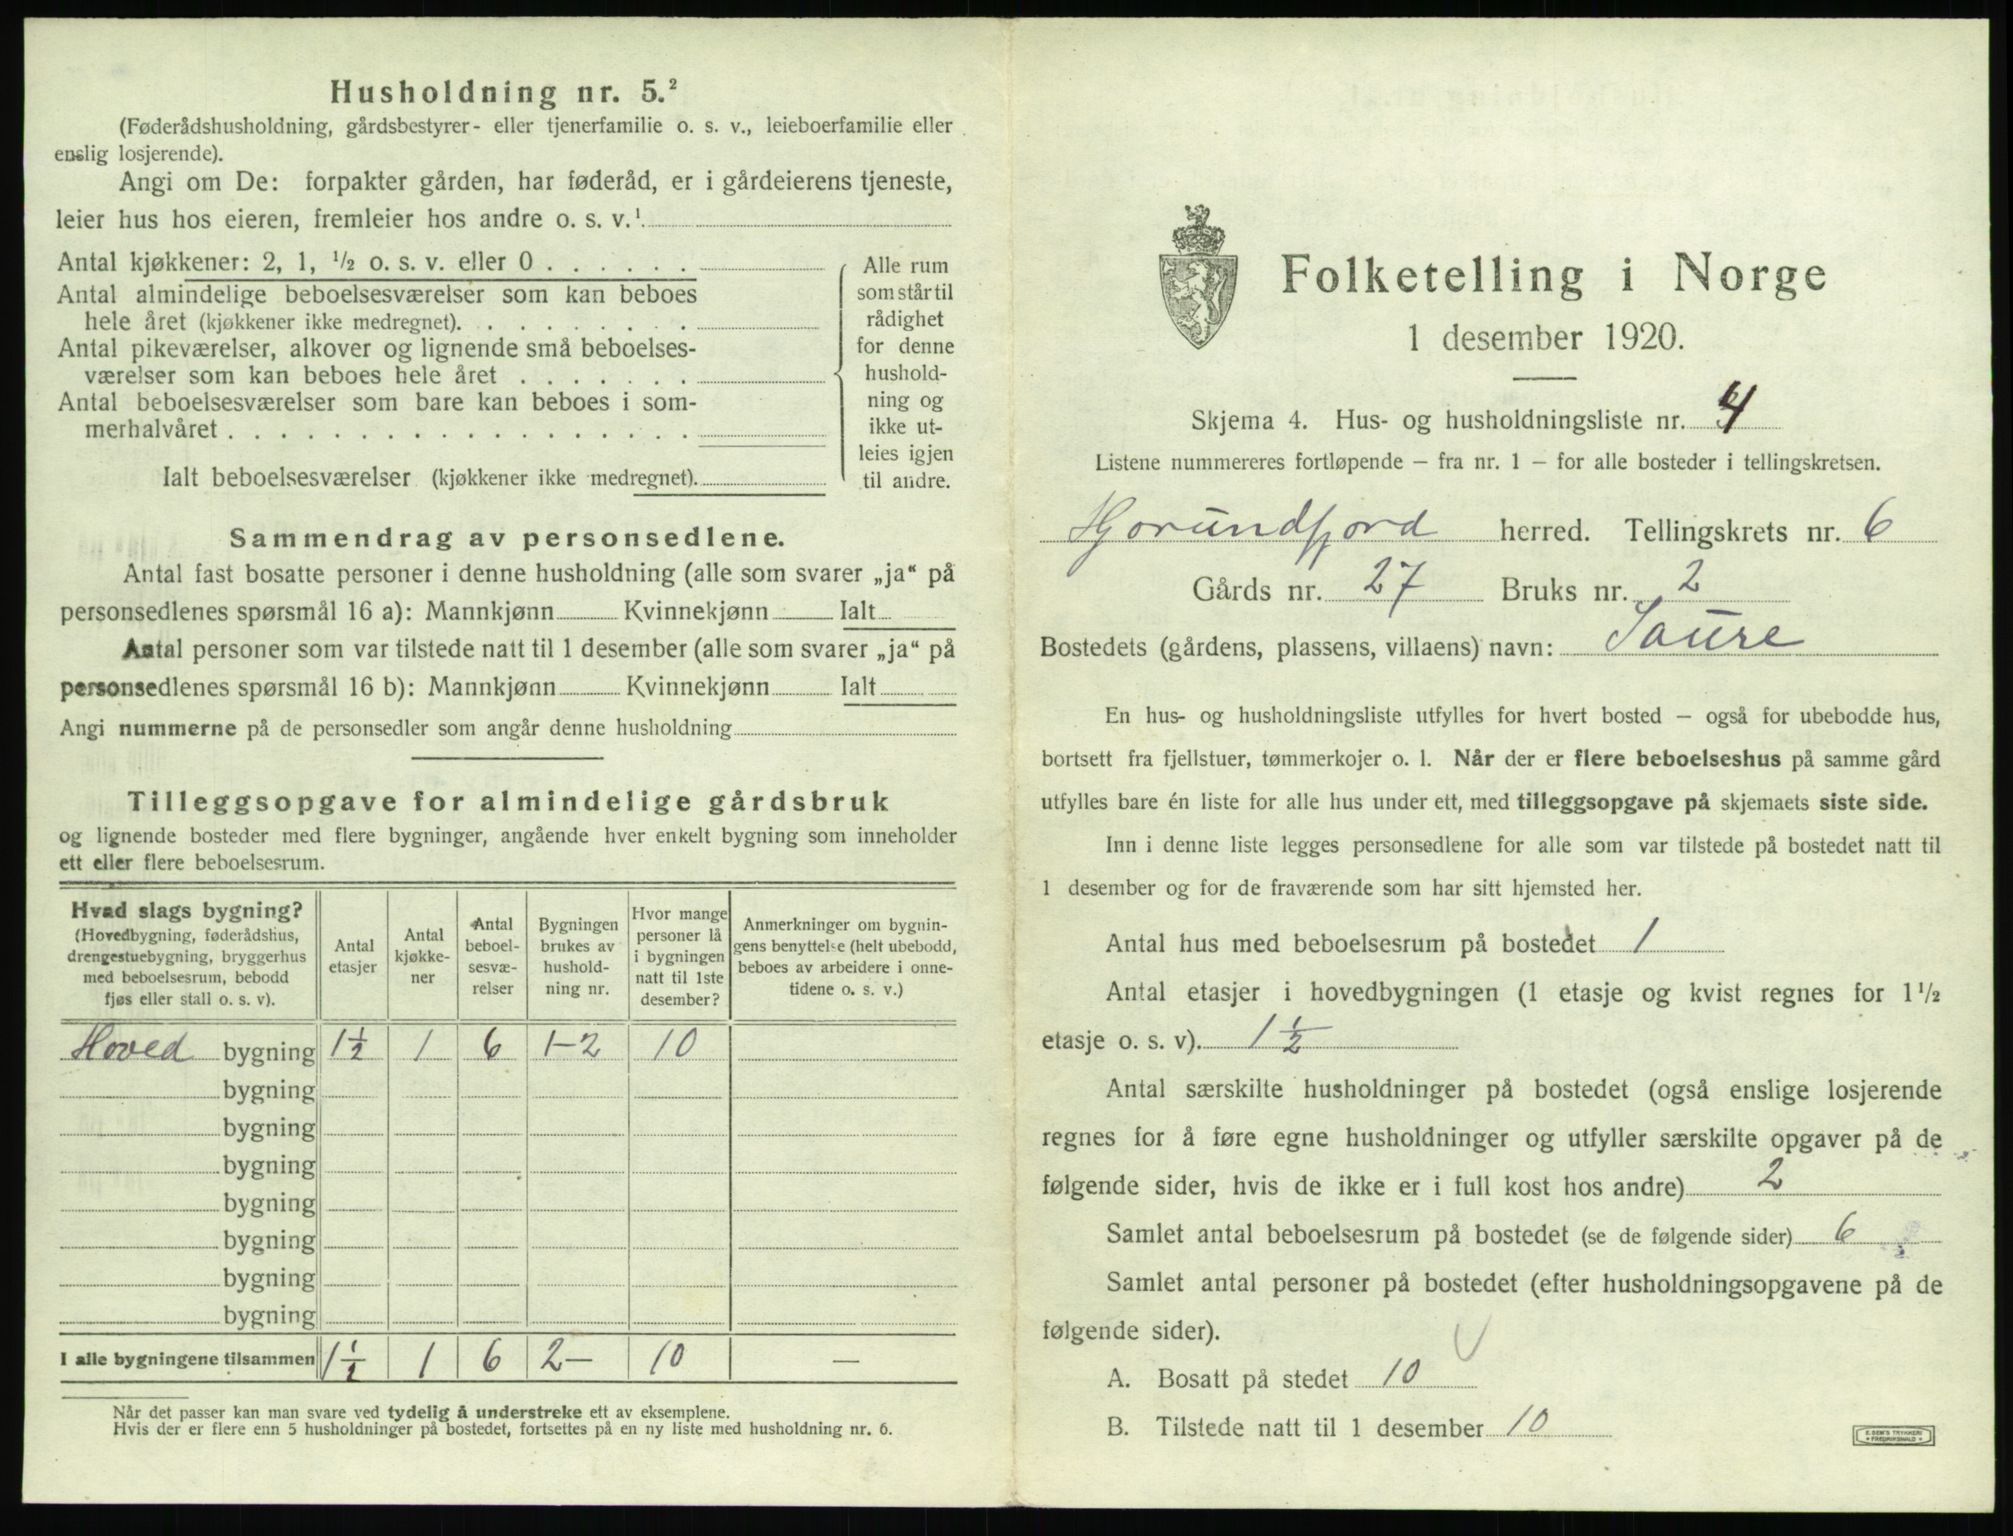 Husholdning nr. 5.²
(Føderådshusholdning, gårdsbestyrer- eller tjenerfamilie o. s. v., leieboerfamilie eller
enslig losjerende).
Angi om De: forpakter gården, har føderåd, er i gårdeierens tjeneste,
leier hus hos eieren, fremleier hos andre o. s. v.¹
Antal kjøkkener: 2, 1, ½ o. s. v. eller 0 . . . . . .
Antal almindelige beboelsesværelser som kan beboes
hele året (kjøkkener ikke medregnet). . . . . . . . .
Antal pikeværelser, alkover og lignende små beboelses-
værelser som kan beboes hele året . . . . . . .
Antal beboelsesværelser som bare kan beboes i som-
merhalvåret . . . . . . . . . . . . . . . . . .
Alle rum
som står til
rådighet
for denne
hushold-
ning og
ikke ut-
leies igjen
til andre.
Ialt beboelsesværelser (kjøkkener ikke medregnet).
Sammendrag av personsedlene.
Antal fast bosatte personer i denne husholdning (alle som svarer „ja“ på
personsedlenes spørsmål 16 a): Mannkjønn Kvinnekjønn Ialt
Antal personer som var tilstede natt til 1 desember (alle som svarer „ja“ på
personsedlenes spørsmål 16 b): Mannkjønn Kvinnekjønn Ialt
Angi nummerne på de personsedler som angår denne husholdning
Tilleggsopgave for almindelige gårdsbruk
og lignende bosteder med flere bygninger, angående hver enkelt bygning som inneholder
ett eller flere beboelsesrum.
Hvad slags bygning?
(Hovedbygning, føderådshus,
drengestuebygning, bryggerhus
med beboelsesrum, bebodd
fjøs eller stall o. s. v).
Antal
etasjer
Antal
kjøkke-
ner
Antal
beboel-
sesvæ-
relser
Bygningen
brukes av
hushold-
ning nr.
Hvor mange
personer lå
i bygningen
natt til 1ste
desember?
Anmerkninger om bygnin-
gens benyttelse (helt ubebodd,
beboes av arbeidere i onne-
tidene o. s. v.)
Hoved bygning 1½ 1 6 1-2 10
bygning
bygning
bygning
bygning
bygning
bygning
bygning
I alle bygningene tilsammen 1½ 1 6 2- 10 —
Når det passer kan man svare ved tydelig å understreke ett av eksemplene.
Hvis der er flere enn 5 husholdninger på bostedet, fortsettes på en ny liste med husholdning nr. 6.
Folketelling i Norge
1 desember 1920.
Skjema 4. Hus- og husholdningsliste nr. 4
Listene nummereres fortløpende – fra nr. 1 – for alle bosteder i tellingskretsen.
Hjorundfjord herred. Tellingskrets nr. 6
Gårds nr. 27 Bruks nr. 2
Bostedets (gårdens, plassens, villaens) navn: Saure
En hus- og husholdningsliste utfylles for hvert bosted – også for ubebodde hus,
bortsett fra fjellstuer, tømmerkojer o. l. Når der er flere beboelseshus på samme gård
utfylles bare én liste for alle hus under ett, med tilleggsopgave på skjemaets siste side.
Inn i denne liste legges personsedlene for alle som var tilstede på bostedet natt til
1 desember og for de fraværende som har sitt hjemsted her.
Antal hus med beboelsesrum på bostedet 1
Antal etasjer i hovedbygningen (1 etasje og kvist regnes for 1½
etasje o. s. v). 1½
Antal særskilte husholdninger på bostedet (også enslige losjerende
regnes for å føre egne husholdninger og utfyller særskilte opgaver på de
følgende sider, hvis de ikke er i full kost hos andre) 2
Samlet antal beboelsesrum på bostedet (se de følgende sider) 6
Samlet antal personer på bostedet (efter husholdningsopgavene på de
følgende sider).
A. Bosatt på stedet 10
B. Tilstede natt til 1 desember 10